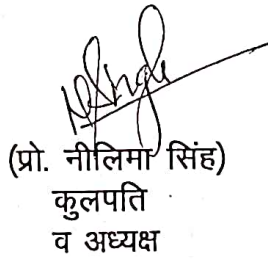 (प्रो. नीलिमा सिंह)
कुलपति
व अध्यक्ष